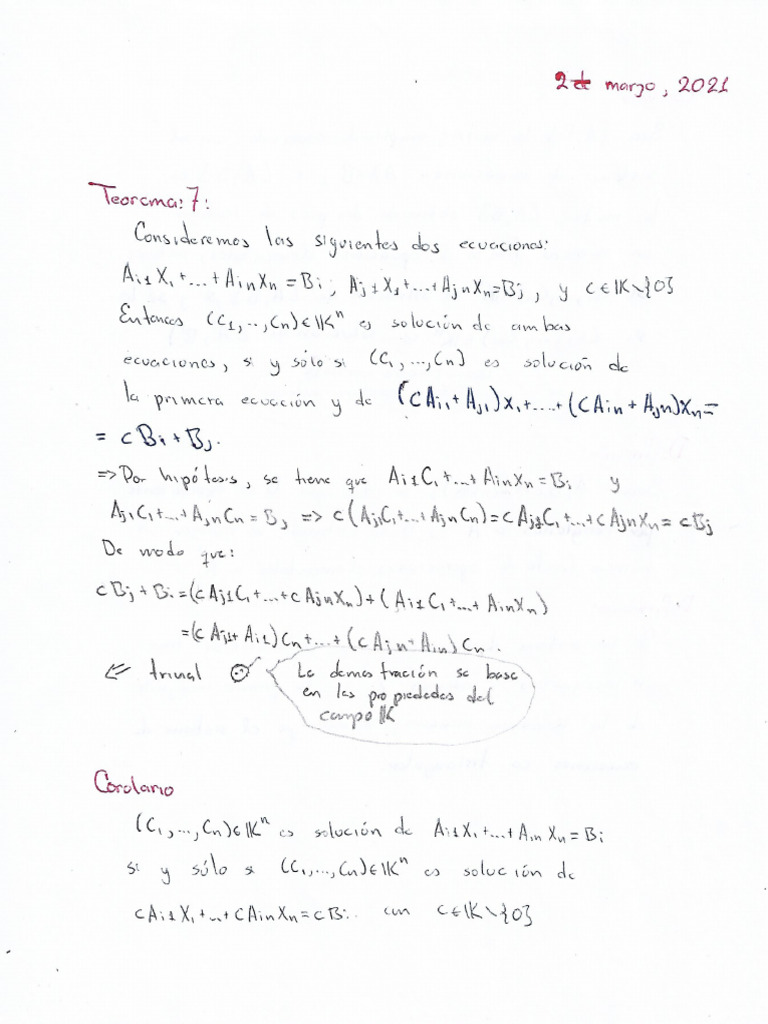 2 de marzo, 2021
Teorema: 7:
Consideremos las siguientes dos ecuaciones:
Ai1X1+...+AinXn=Bi, Aj1X1+...+AjnXn=Bj, y c∈𝕂∖{0}
Entonces (C1,..,Cn)∈𝕂ⁿ es solución de ambas
ecuaciones, si y sólo si (C1,...,Cn) es solución de
la primera ecuación y de (cAi1+Aj1)x1+....+(cAin+Ajn)xn=
= cBi+Bj.
=>Por hipótesis, se tiene que Ai1C1+...+AinXn=Bi y
Aj1C1+...+AjnCn=Bj => c(Aj1C1+...+AjnCn)=cAj1C1+...+cAjnXn=cBj
De modo que:
cBj+Bi=(cAj1C1+...+cAjnXn)+(Ai1C1+...+AinXn)
=(cAj1+Ai1)Cn+...+(cAjn+Ain)Cn.
<= trivial La demostración se basa
en las propiedades del
campo 𝕂
Corolario
(C1,...,Cn)∈𝕂ⁿ es solución de Ai1X1+...+AinXn=Bi
si y sólo si (C1,...,Cn)∈𝕂ⁿ es solución de
cAi1X1+..+cAinXn=cBi. con c∈𝕂∖{0}